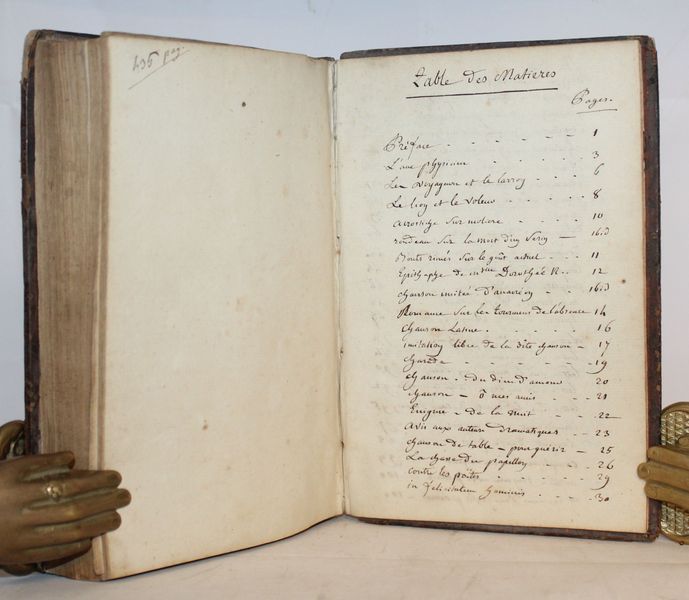 495 pag.
Table des Matieres
Pages.
Préface 1
L'ane physicien 3
Les voyageurs et le larron 6
Le lion et le voleur 8
acrostiche sur moliere 10
rondeau sur la mort d'un serin ibid
Bouts rimés sur le goût actuel 11
Epithaphe de mme Dorothée N.. 12
chanson imitée d'anacréon ibid
Romance sur les tourmens de l'absence 14
Chanson Latine 16
imitation libre de la dite chanson 17
charade 19
chanson - du dieu d'amour 20
chanson - ô mes amis 21
Enigme - de la nuit 22
avis aux auteurs dramatiques 23
chanson de table - pour guérir 25
La chasse du papillon 26
contre les poëtes 29
in 30